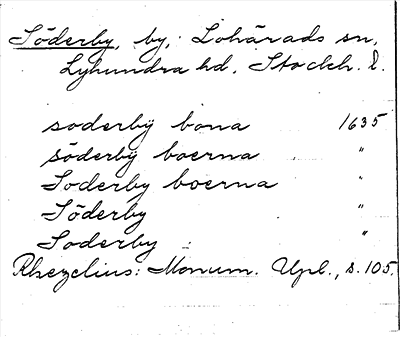 Söderby, by, Lohärads sn,
Lyhundra hd, Stockh. l.
soderbÿ bona 1635
söderbÿ boerna "
Soderby boerna "
Söderby "
Soderby "
Rhezelius: Monum. Upl., s. 105.